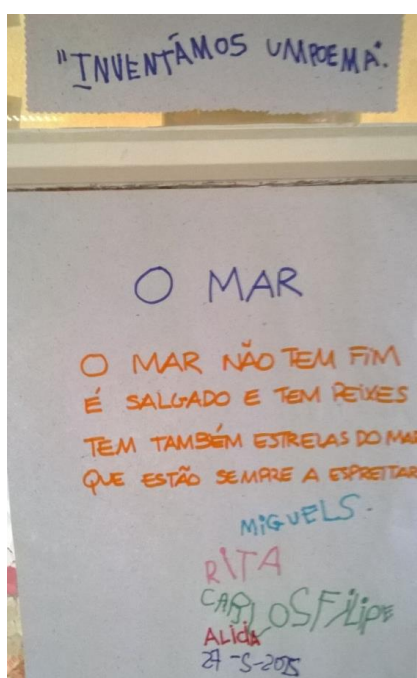 "INVENTÁMOS UM POEMA".
O MAR
O MAR NÃO TEM FIM
É SALGADO E TEM PEIXES
TEM TAMBÉM ESTRELAS DO MAR
QUE ESTÃO SEMPRE A ESPREITAR
MIGUEL S.
RITA
CARLOS FILIPE
ALIDA
27-5-2015